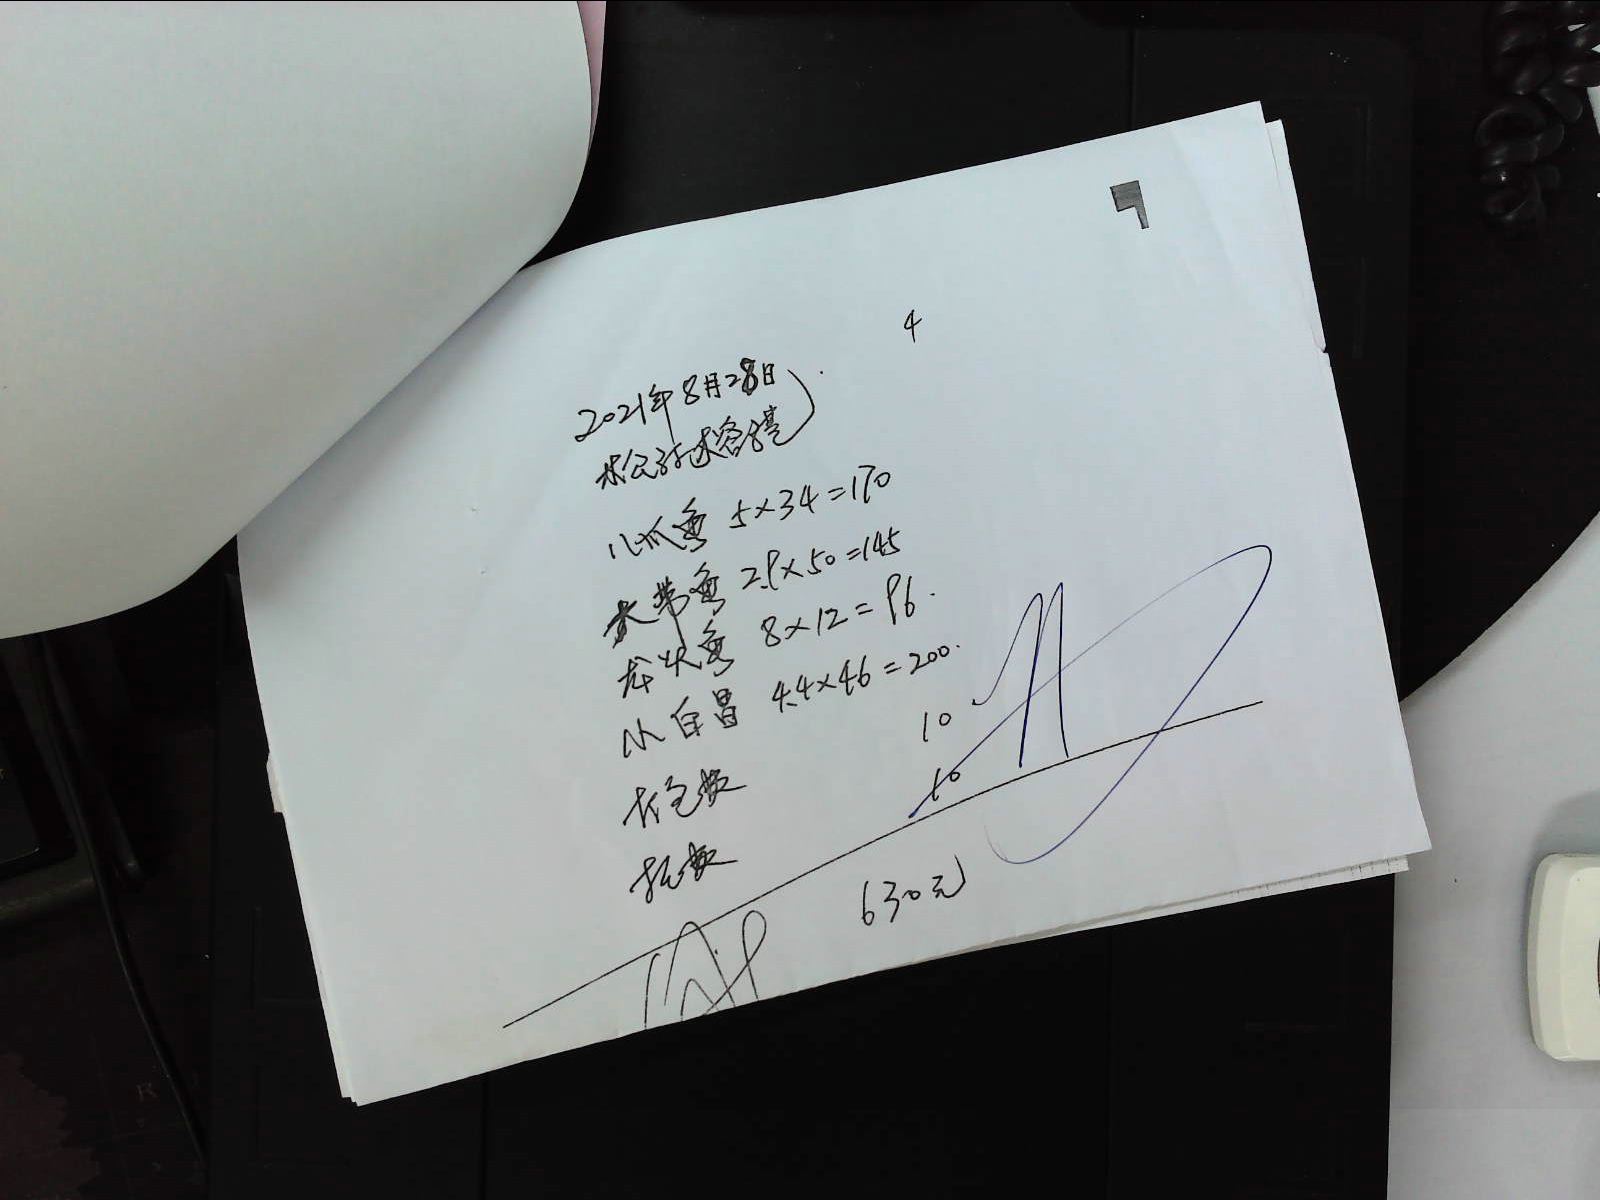 4
2021年8月28日
八爪鱼 5×34=170
大带鱼 2.9×50=145
龙头鱼 8×12=96.
小白昌 4.4×46=200.
10
10
630元